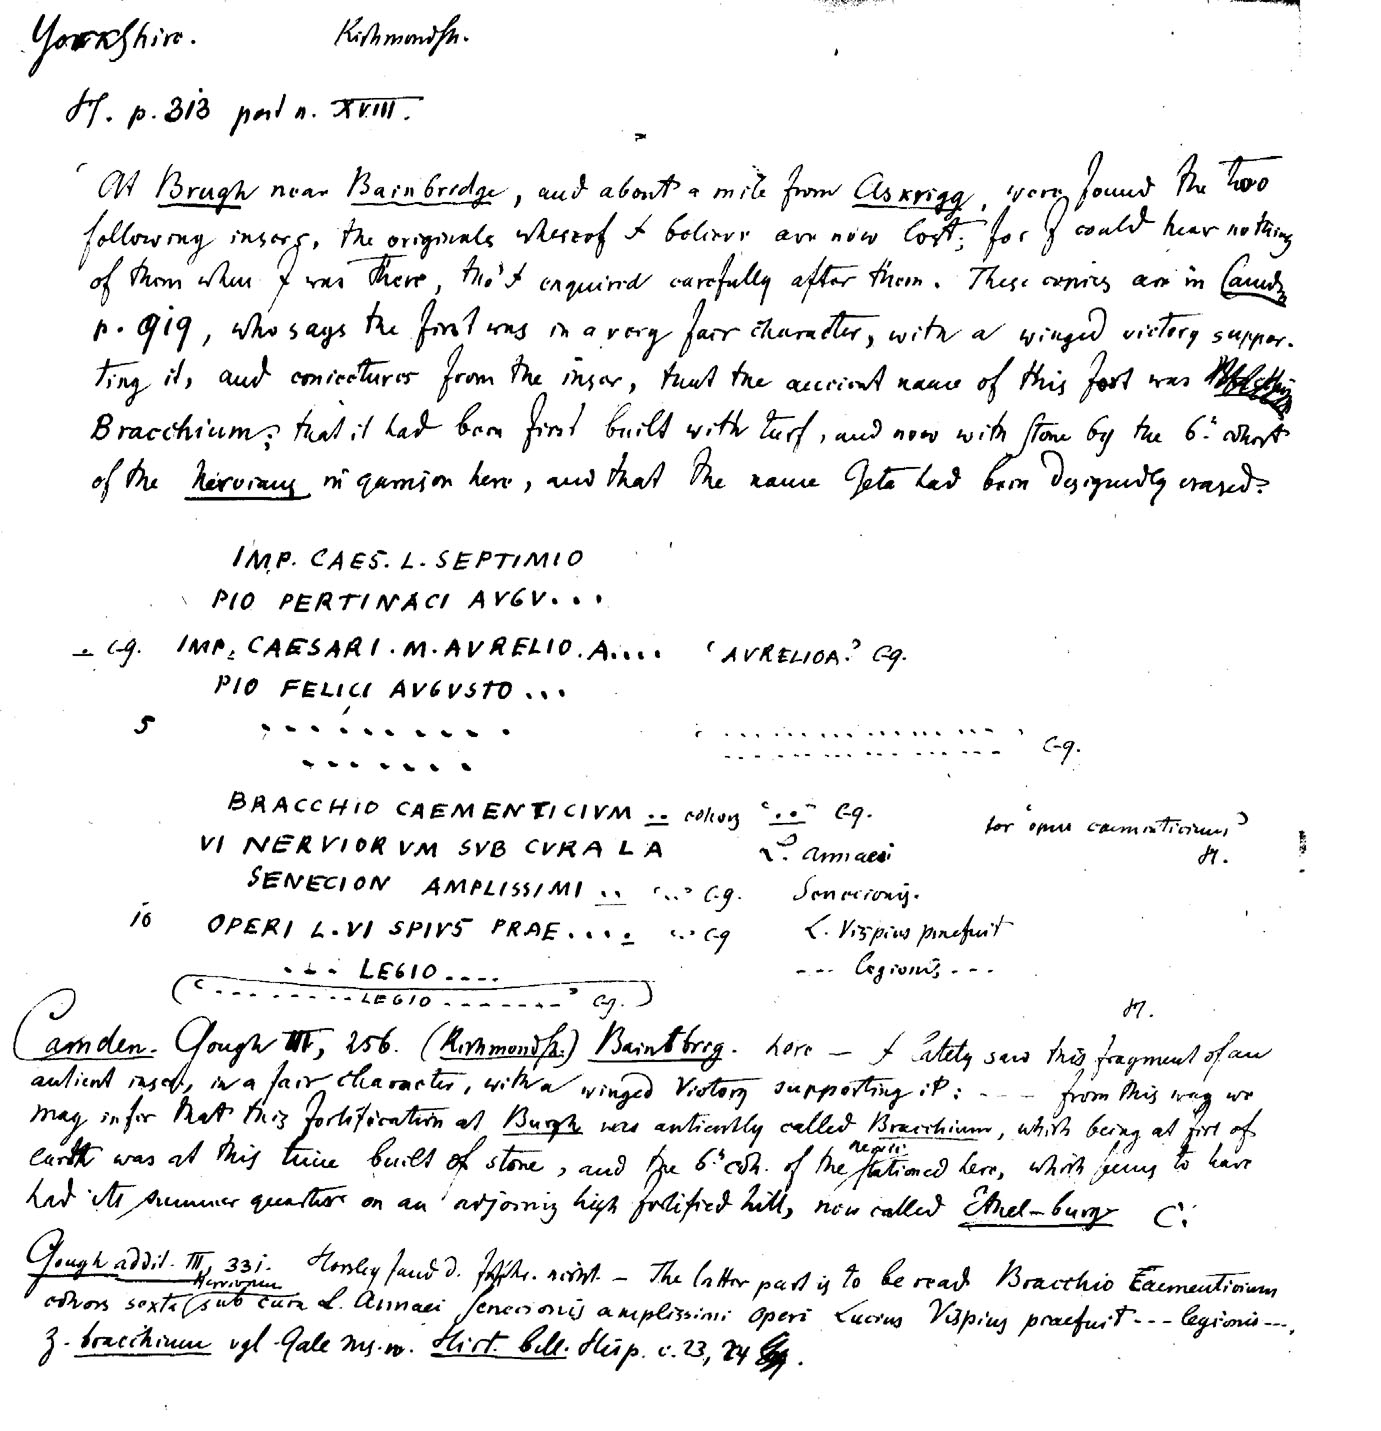 Yorkshire. Richmondsh.
H. p. 313 post n. XVIII.
'At Brugh near Bainbridge, and about a mile from Askrigg, were found the two
following inscr., the originals whereof I believe are now lost; for I could hear nothing
of them when I was there, tho' I enquired carefully after them. These copies are in Camd.
p. 919, who says the first was in a very fair character, with a winged victory suppor-
ting it, and coniectures from the inscr., that the ancient name of this fort was
Bracchium; that it had been first built with turf, and now with stone by the 6th cohort
of the Nervians in garrison here, and that the name Geta had been designedly erased.'
IMP. CAES. L. SEPTIMIO
PIO PERTINACI AVGV...
C-g. IMP. CAESARI. M. AVRELIO. A.... 'AVRELIOA.' C-g.
PIO FELICI AVGVSTO ...
5 ......... ' ............... ' C-g.
....... ...............
BRACCHIO CAEMENTICIVM .. cohors '..' C-g. for 'opus caementicium'
VI NERVIORVM SVB CVRA L A L. Annaei H.
SENECION AMPLISSIMI .. '..' C-g. Senecionis.
10 OPERI L. VI SPIVS PRAE.... '..' C-g L. Vispius praefuit
... LEGIO.... --- legionis ---
('.........LEGIO........' C-g.)
H.
Camden. Gough III, 256. (Richmondsh.) Baintbrig. here — I lately saw this fragment of an
antient inscr., in a fair character, with a winged Victory supporting it: --- from this way we
may infer that this fortification at Burgh was antiently called Bracchium, which being at first of
earth was at this time built of stone, and the 6th coh. of the Nervii stationed here, which seems to have
had its summer quarters on an adjoining high fortified hill, now called Ethel-burg C.
Gough addit. III, 331. Horsley fand d. nicht. — The latter part is to be read Bracchio Eaementicium
cohors sexta Nerviorum sub cura L. Annaei Senecionis amplissimi operi Lucius Vispius praefuit --- legionis ---.
Z. bracchium vgl. Gale ms. Hirt. bell. Hisp. c. 23, 24.